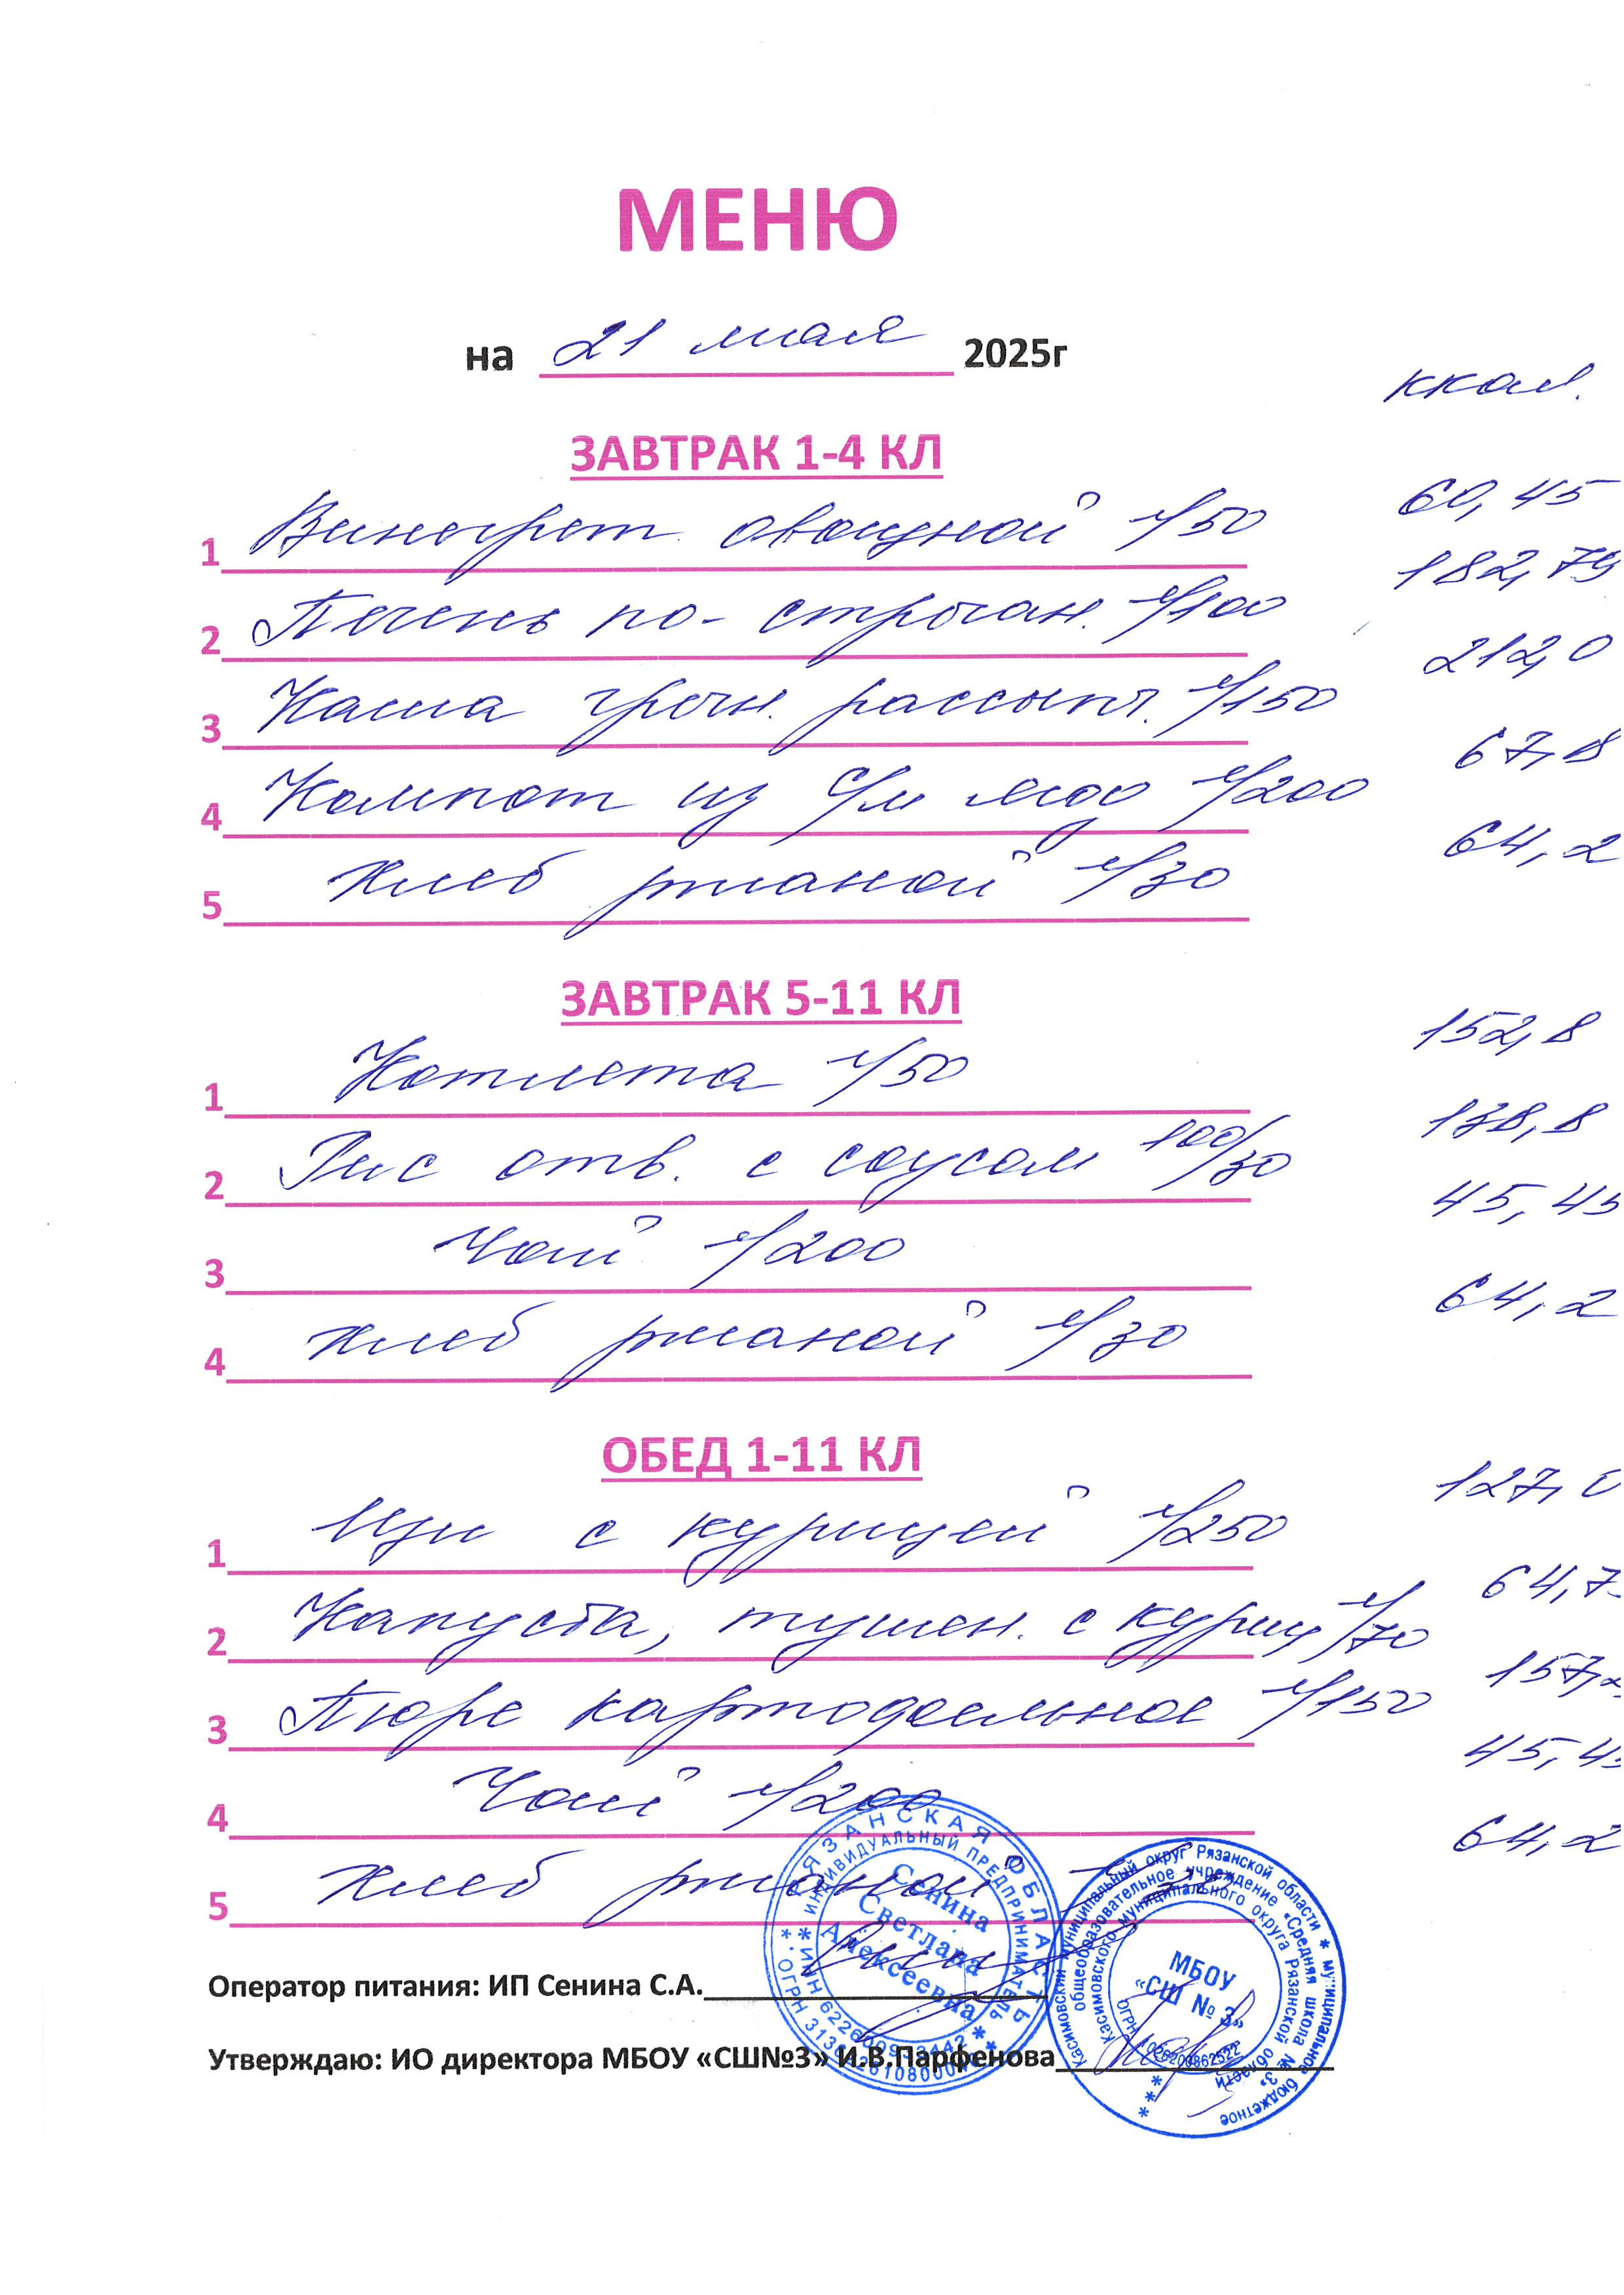 МЕНЮ
на 21 мая 2025г
ккал.
ЗАВТРАК 1-4 КЛ
1 Винегрет овощной 1/50 60,45
2 Печень по-строган. 1/100 182,79
3 Каша гречн. рассып. 1/150 212,0
4 Компот из с/м ягод 1/200 67,8
5 Хлеб ржаной 1/30 64,2
ЗАВТРАК 5-11 КЛ
1 Котлета 1/50 152,8
2 Рис отв. с соусом 100/30 138,8
3 Чай 1/200 45,45
4 Хлеб ржаной 1/30 64,2
ОБЕД 1-11 КЛ
1 Щи с курицей 1/250 127,0
2 Капуста, тушен. с куриц 1/70 64,7
3 Пюре картофельное 1/150 157,2
4 Чай 1/200 45,45
5 Хлеб ржаной 64,2
Оператор питания: ИП Сенина С.А.
Утверждаю: ИО директора МБОУ «СШ№3» И.В.Парфенова
РЯЗАНСКАЯ ОБЛАСТЬ
ИНДИВИДУАЛЬНЫЙ ПРЕДПРИНИМАТЕЛЬ
Сенина
Светлана
Алексеевна
Касимовский муниципальный округ Рязанской области * муниципальное бюджетное
общеобразовательное учреждение «Средняя школа № 3»
Касимовского муниципального округа Рязанской области
МБОУ
«СШ № 3»